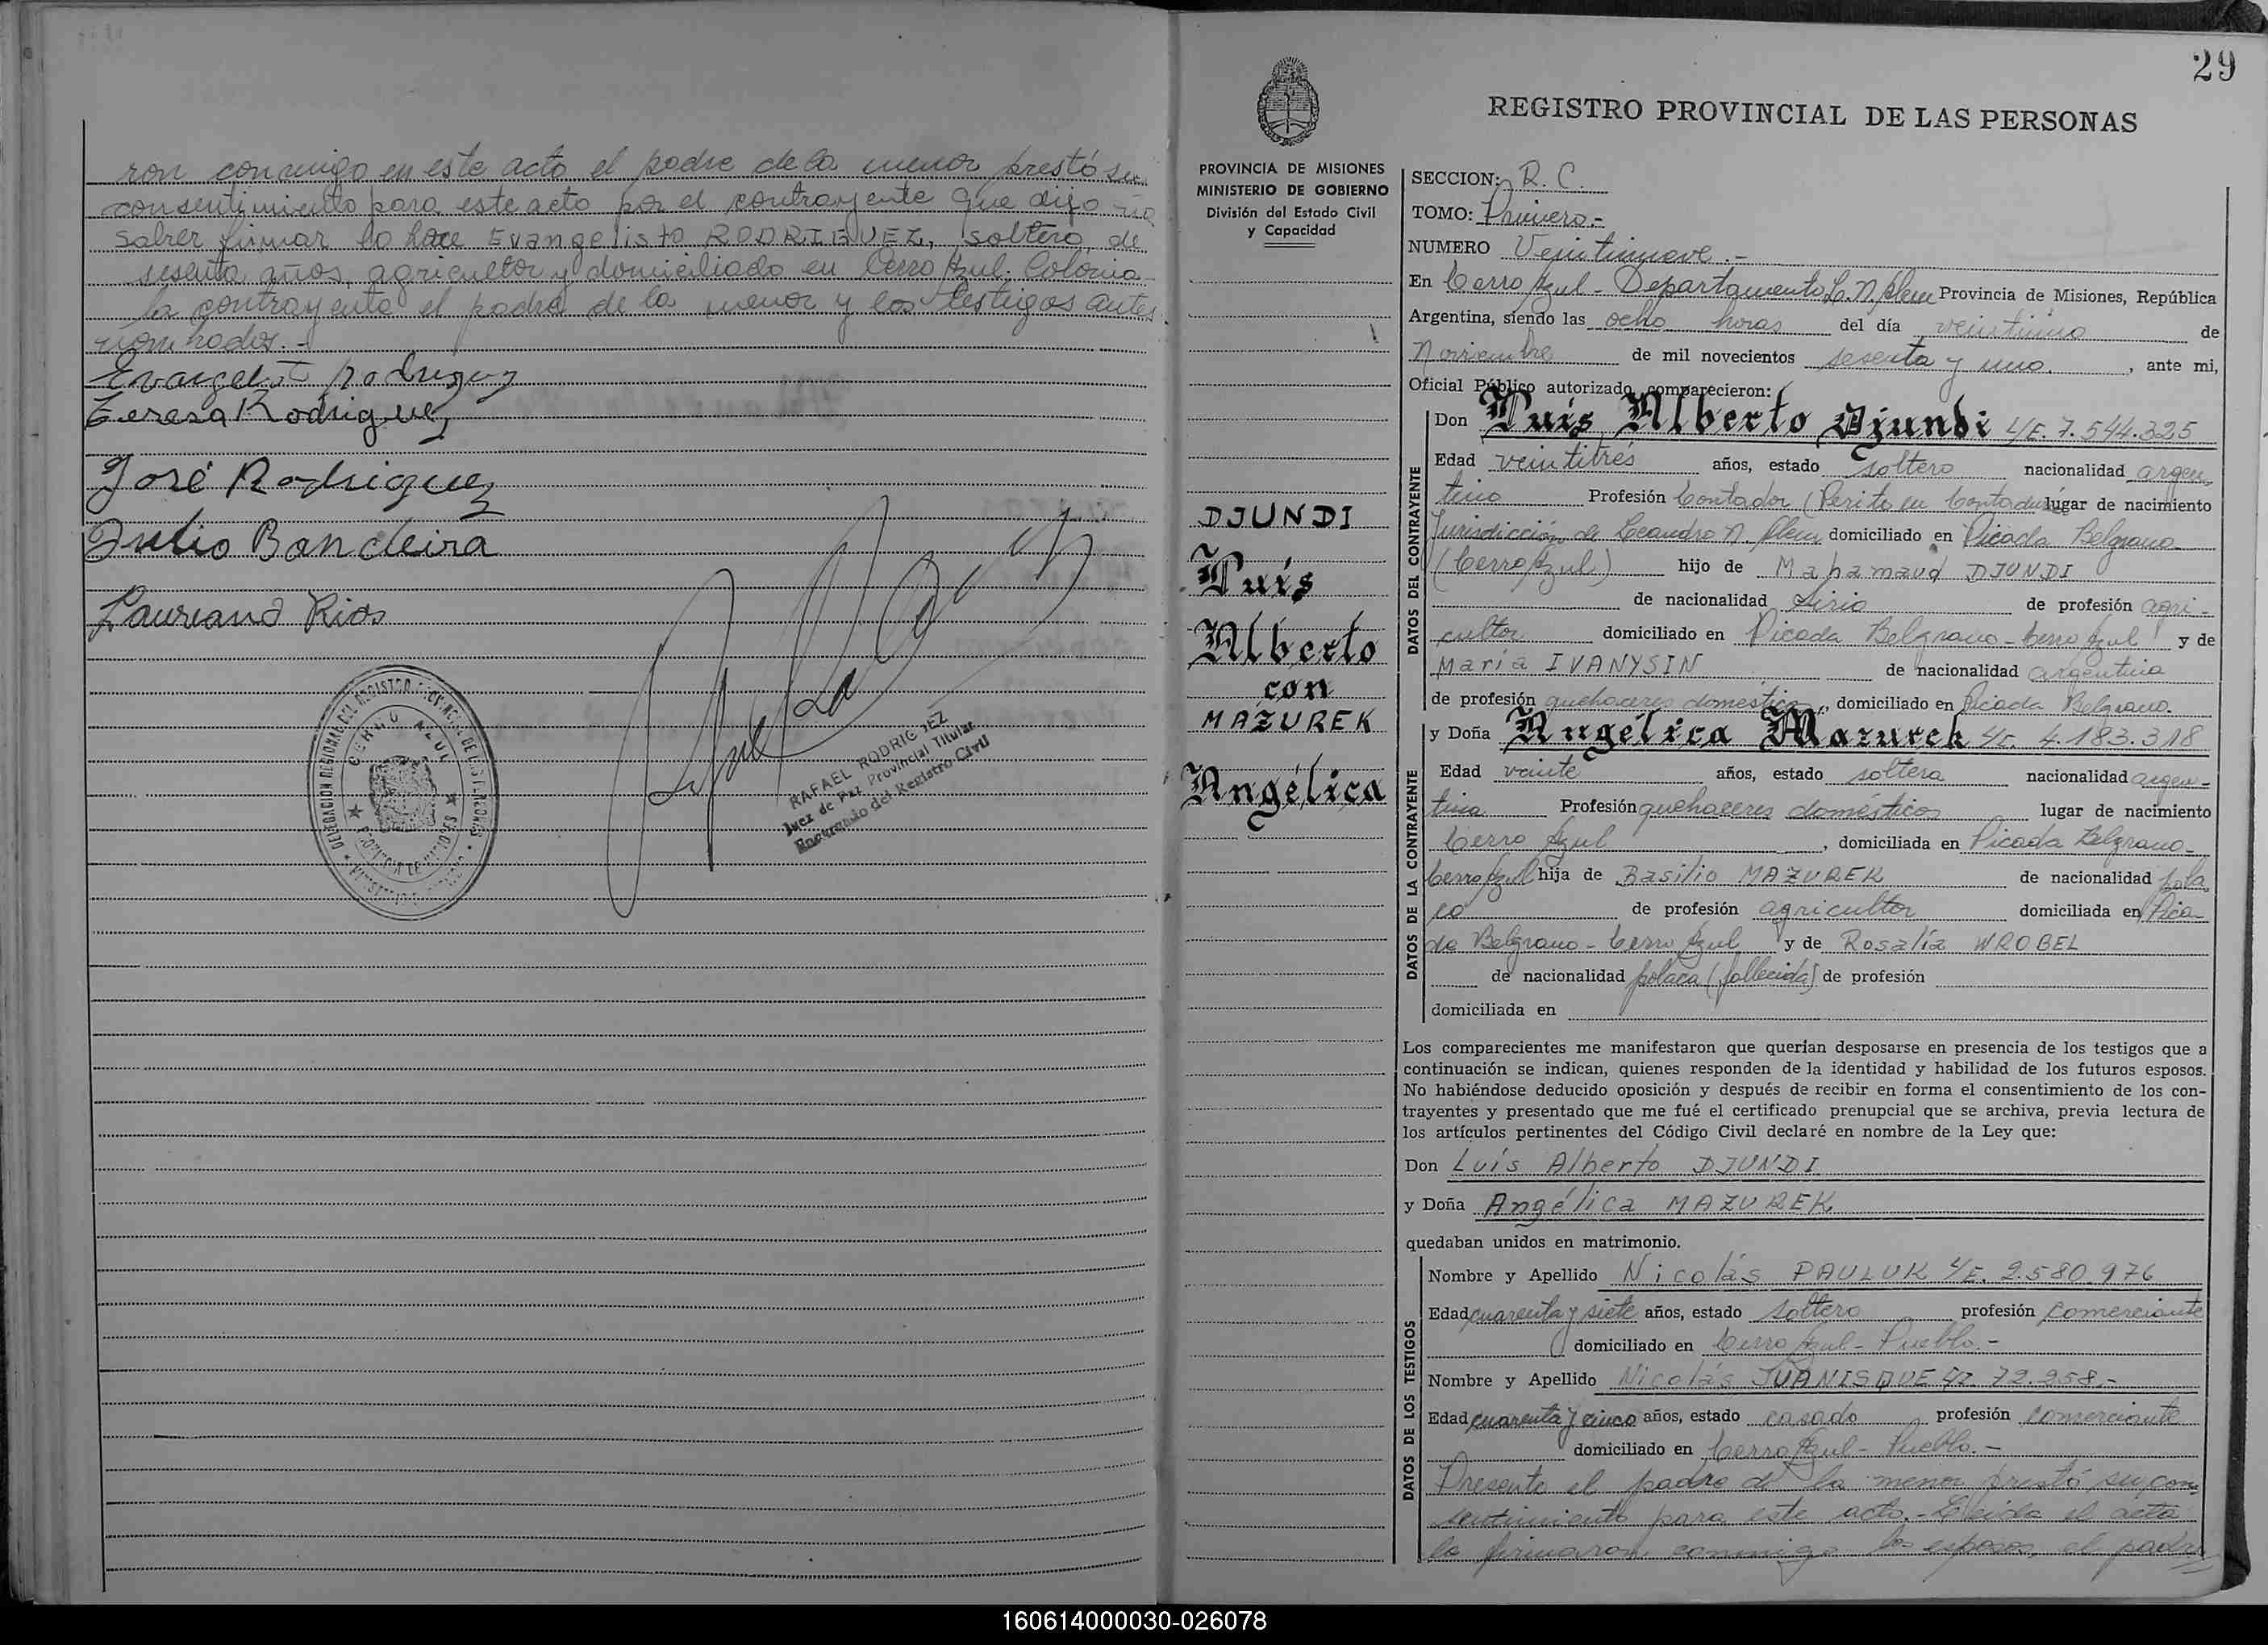 ron conmigo en este acto el padre de la menor prestó su
consentimiento para este acto por el contrayente que dijo no
saber firmar lo hace Evangelisto RODRIGUEZ, soltero, de
sesenta años, agricultor y domiciliado en Cerro Azul. Colonia
la contrayente el padre de la menor y los testigos antes
nombrados.-
Evangelisto Rodriguez
Teresa Rodriguez
José Rodriguez
Julio Bandeira
Laureano Rios
RAFAEL RODRIGUEZ
Juez de Paz Provincial Titular
Encargado del Registro Civil
CERRO AZUL
29
REGISTRO PROVINCIAL DE LAS PERSONAS
PROVINCIA DE MISIONES
MINISTERIO DE GOBIERNO
División del Estado Civil
y Capacidad
DJUNDI
Luís
Alberto
con
MAZUREK
Angélica
SECCION: R. C.
TOMO: Primero.-
NUMERO Veintinueve.-
En Cerro Azul - Departamento L. N. Alem Provincia de Misiones, República
Argentina, siendo las ocho horas del día veintiuno de
Noviembre de mil novecientos sesenta y uno. , ante mi,
Oficial Público autorizado, comparecieron:
DATOS DEL CONTRAYENTE
Don Luís Alberto Djundi L/E. 7.544.325
Edad veintitrés años, estado soltero nacionalidad argen
tino Profesión Contador (Perito en Contaduría lugar de nacimiento
Jurisdicción de Leandro N. Alem domiciliado en Picada Belgrano
(Cerro Azul) hijo de Mahamaud DJUNDI
de nacionalidad sirio de profesión agri-
cultor domiciliado en Picada Belgrano - Cerro Azul y de
María IVANYSIN de nacionalidad argentina
de profesión quehaceres domésticos, domiciliado en Picada Belgrano.
DATOS DE LA CONTRAYENTE
y Doña Angélica Mazurek L/C. 4.183.318
Edad veinte años, estado soltera nacionalidad argen-
tina Profesión quehaceres domésticos lugar de nacimiento
Cerro Azul , domiciliada en Picada Belgrano-
Cerro Azul hija de Basilio MAZUREK de nacionalidad pola
co de profesión agricultor domiciliada en Pica-
da Belgrano - Cerro Azul y de Rosalía WROBEL
de nacionalidad polaca (fallecida) de profesión
domiciliada en
Los comparecientes me manifestaron que querían desposarse en presencia de los testigos que a
continuación se indican, quienes responden de la identidad y habilidad de los futuros esposos.
No habiéndose deducido oposición y después de recibir en forma el consentimiento de los con-
trayentes y presentado que me fué el certificado prenupcial que se archiva, previa lectura de
los artículos pertinentes del Código Civil declaré en nombre de la Ley que:
Don Luís Alberto DJUNDI
y Doña Angélica MAZUREK
quedaban unidos en matrimonio.
DATOS DE LOS TESTIGOS
Nombre y Apellido Nicolás PAULUK L/E. 2.580.976
Edad cuarenta y siete años, estado soltero profesión comerciante
domiciliado en Cerro Azul - Pueblo.-
Nombre y Apellido Nicolás JUANISQUE 72.258.-
Edad cuarenta y cinco años, estado casado profesión comerciante
domiciliado en Cerro Azul - Pueblo.-
Presente el padre de la menor prestó su con
sentimiento para este acto.- Leída el acta
la firmaron conmigo los esposos, el padre
160614000030-026078